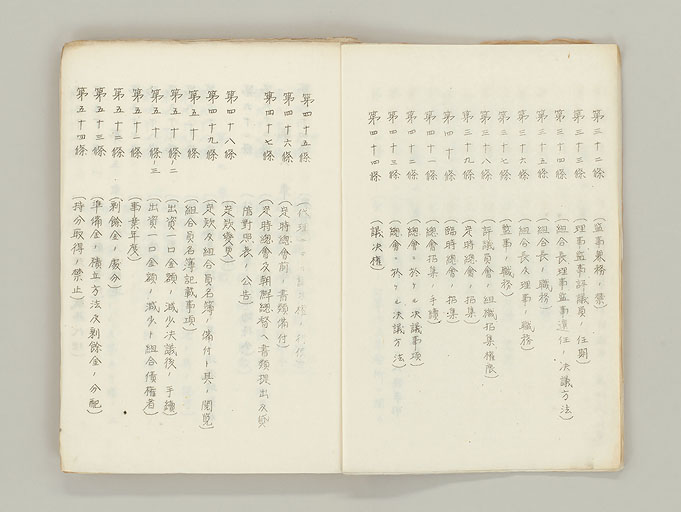 第三十二條 (監事兼務ノ禁)
第三十三條 (理事監事評議員ノ任期)
第三十四條 (組合長理事監事選任ノ決議方法)
第三十五條 (組合長ノ職務)
第三十六條 (組合長及理事ノ職務)
第三十七條 (監事ノ職務)
第三十八條 (評議員會ノ組織招集權限)
第三十九條 (定時總會ノ招集)
第四十條 (臨時總會ノ招集)
第四十一條 (總會招集ノ手續)
第四十二條 (總會ニ於ケル決議事項)
第四十三條 (總會ニ於ケル決議方法)
第四十四條 (議決權)
第四十五條
第四十六條 (定時總會前ノ書類備付)
第四十七條 (定時總會及朝鮮總督ヘ書類提出及貸
借對照表ノ公告)
第四十八條 (定款變更)
第四十九條 (定款及組合員名簿ノ備付ト其ノ閲覽)
第五十條 (組合員名簿記載事項)
第五十條ノ二 (出資一口金額ノ減少決議後ノ手續)
第五十條ノ三 (出資一口金額ノ減少ト組合債權者)
第五十一條 (事業年度)
第五十二條 (剩餘金ノ處分)
第五十三條 (準備金ノ積立方法及剩餘金ノ分配)
第五十四條 (持分取得ノ禁止)